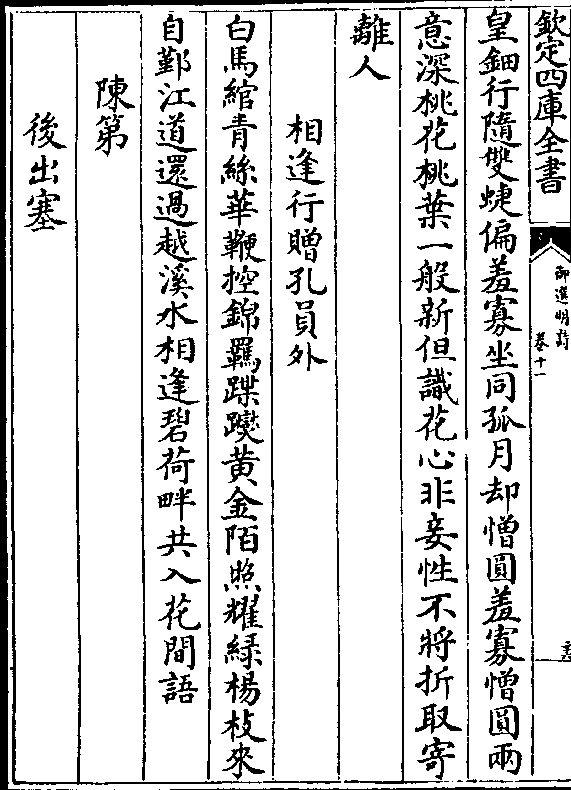 欽定四庫全書
御選明詩
卷十一
皇鈿行隨雙蜨偏羞寡坐同孤月却憎圓羞寡憎圓兩
意深桃花桃葉一般新但識花心非妾性不將折取寄
離人
相逢行贈孔員外
白馬綰青絲華鞭控錦羈蹀躞黄金陌照耀緑楊枝來
自鄞江道還過越溪水相逢碧荷畔共入花間語
陳第
後出塞